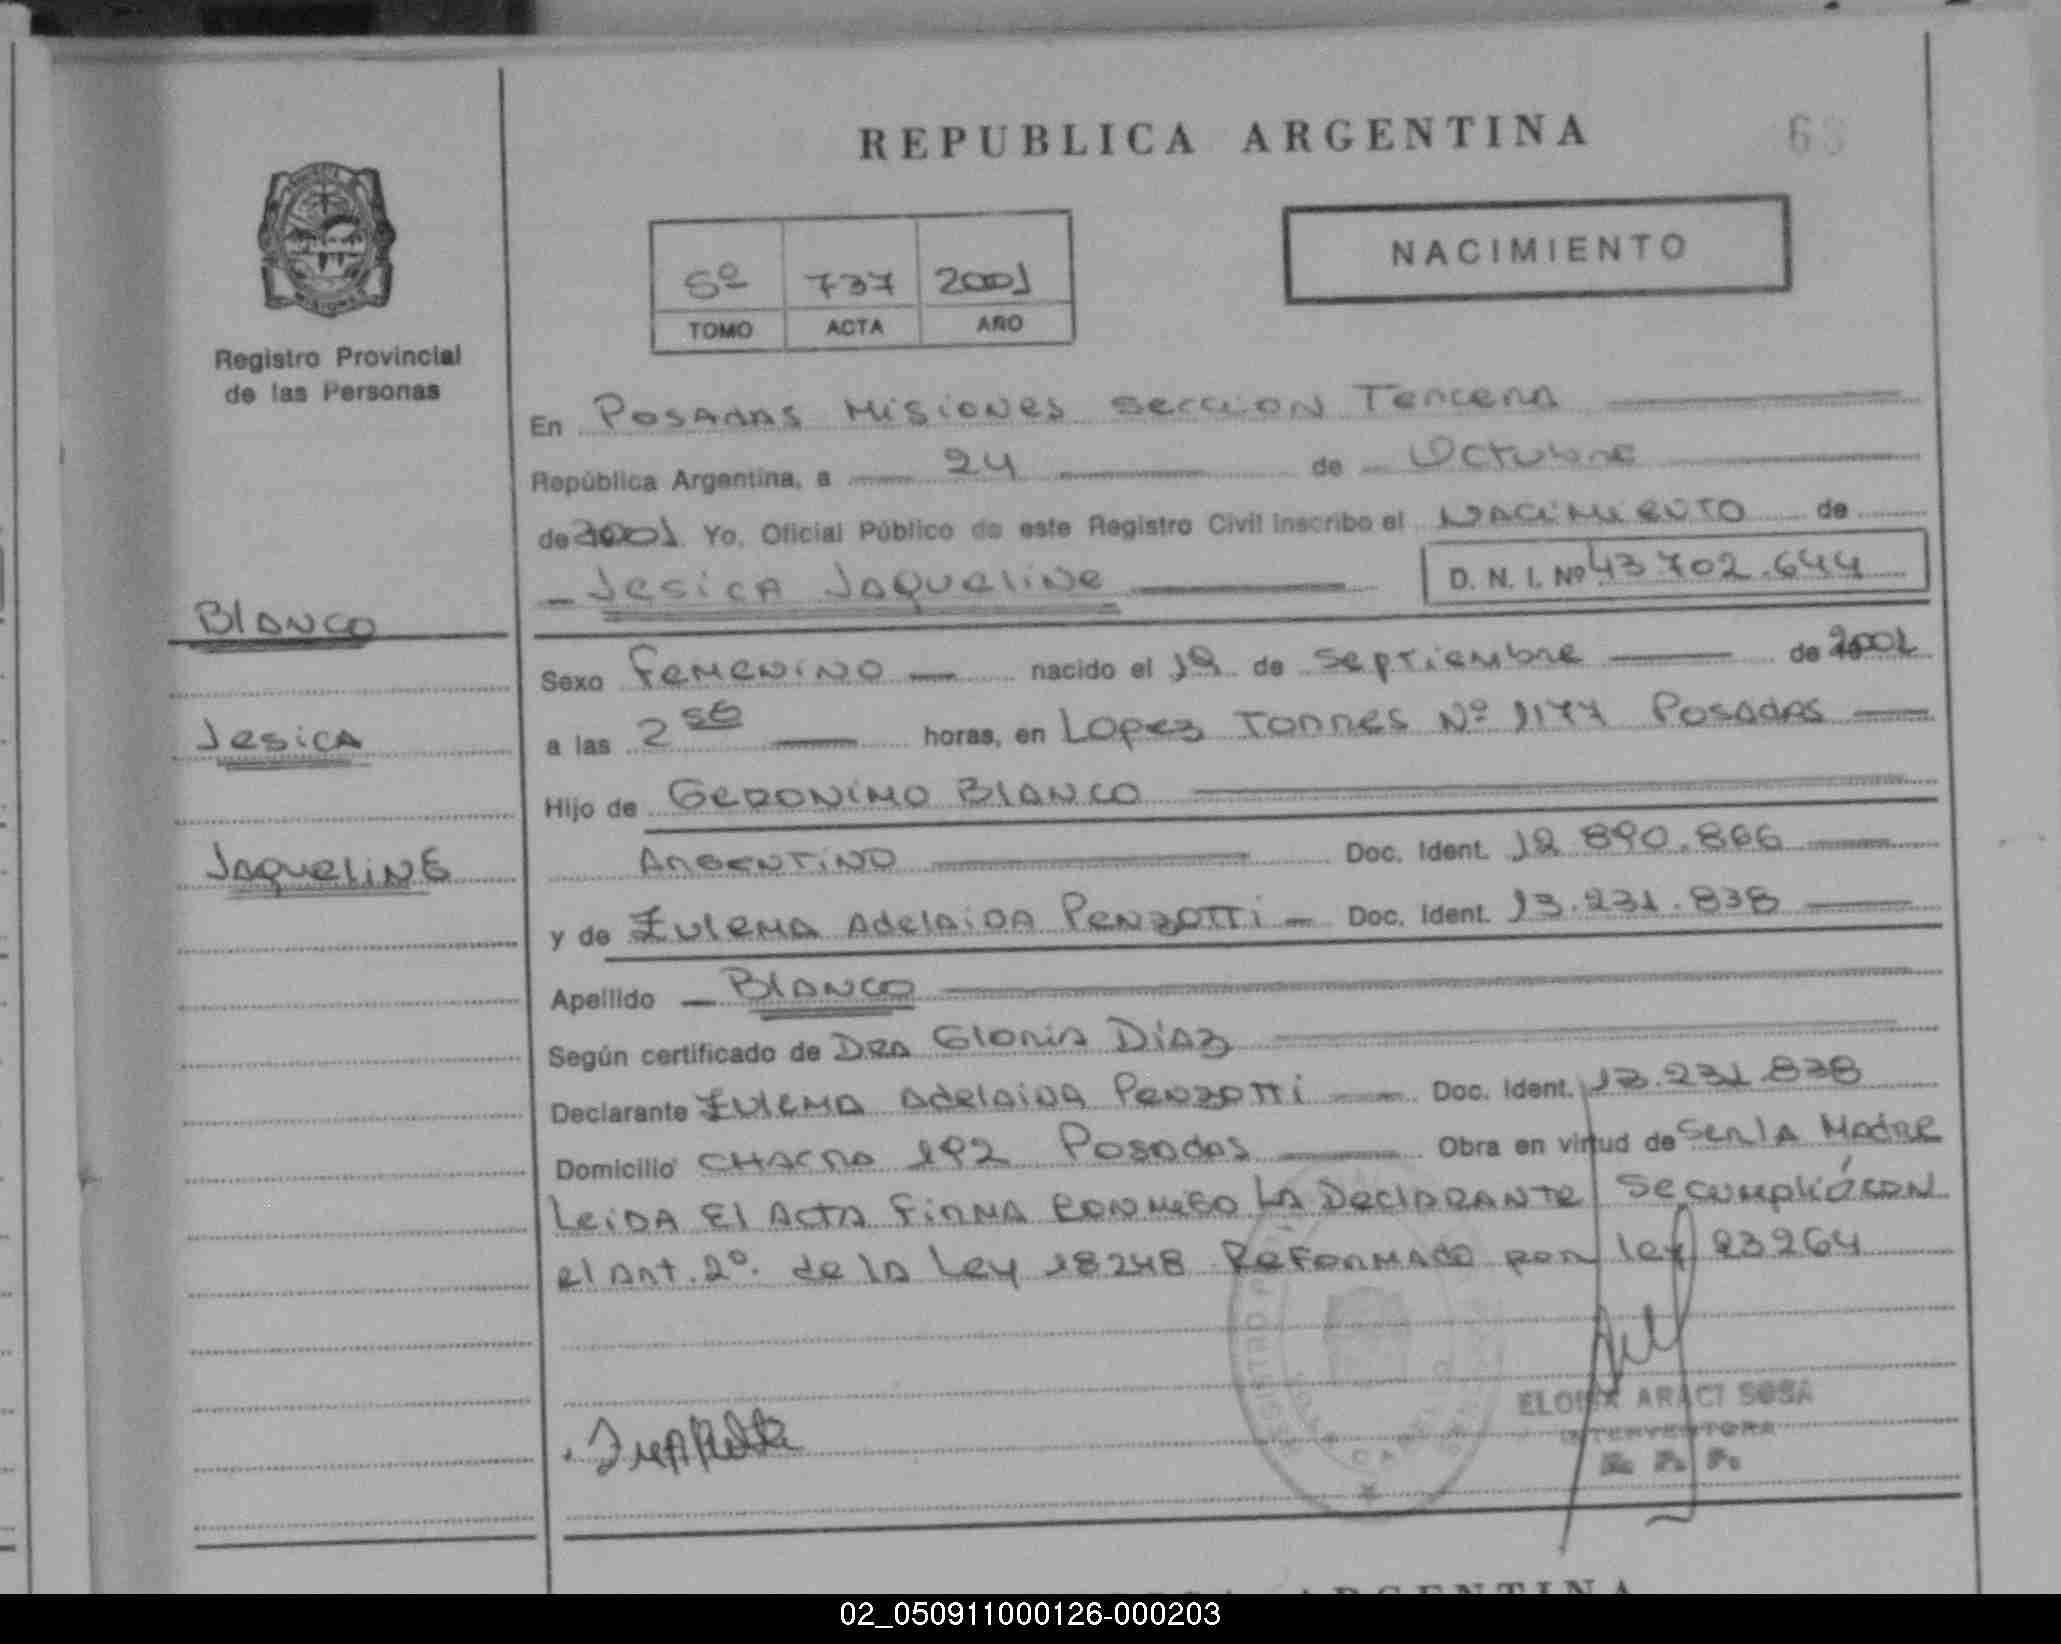 REPUBLICA ARGENTINA
63
NACIMIENTO
5º 737 2001
TOMO ACTA AÑO
Registro Provincial
de las Personas
En Posadas Misiones Seccion Tercera
República Argentina, a 24 de Octubre
de 2001 Yo, Oficial Público de este Registro Civil inscribo el Nacimiento de
Jesica Jaqueline D. N. I. Nº 43.702.644
Blanco
Jesica
Jaqueline
Sexo Femenino nacido el 19 de Septiembre de 2001
a las 2 50 horas, en Lopez Torres Nº 1177 Posadas
Hijo de Geronimo Blanco
Argentino Doc. Ident. 12.890.866
y de Zulema Adelaida Penzotti Doc. Ident. 13.231.838
Apellido Blanco
Según certificado de Dra Gloria Diaz
Declarante Zulema Adelaida Penzotti Doc. Ident. 13.231.838
Domicilio Chacra 192 Posadas Obra en virtud de Ser la Madre
Leida El Acta Firma conmigo La Declarante Se cumplió con
el Art. 2º. de la Ley 18248 Reformado por ley 23264
ELOISA ARACI SOSA
INTERVENTORA
R. P. P.
ARGENTINA
02_050911000126-000203